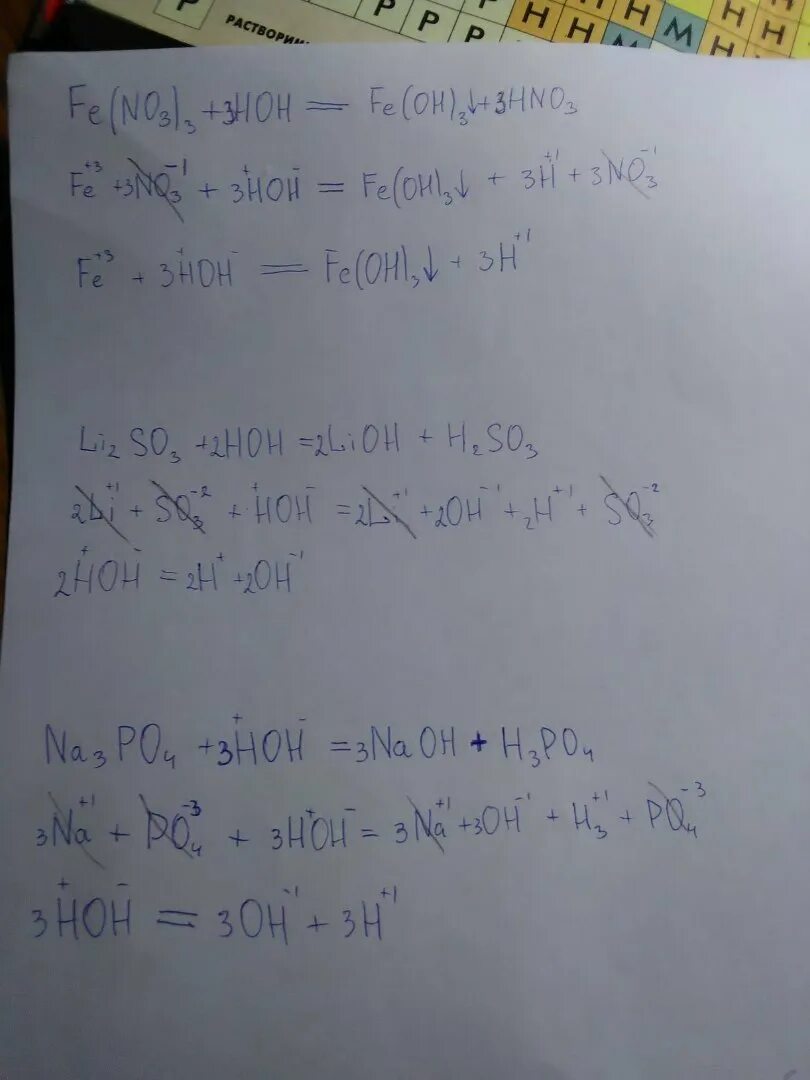 Р Р Р Р Н Н Н Н М Н Н
РАСТВОРИМ
Fe(NO₃)₃ + 3HOH = Fe(OH)₃↓ + 3HNO₃
Fe⁺³ + 3NO₃⁻¹ + 3H⁺OH⁻ = Fe(OH)₃↓ + 3H⁺¹ + 3NO₃⁻¹
Fe⁺³ + 3H⁺OH⁻ = Fe(OH)₃↓ + 3H⁺¹
Li₂SO₃ + 2HOH = 2LiOH + H₂SO₃
2Li⁺¹ + SO₃⁻² + H⁺OH⁻ = 2Li⁺¹ + 2OH⁻¹ + 2H⁺¹ + SO₃⁻²
2H⁺OH⁻ = 2H⁺ + 2OH⁻¹
Na₃PO₄ + 3H⁺OH⁻ = 3NaOH + H₃PO₄
3Na⁺¹ + PO₄⁻³ + 3HO⁺H⁻ = 3Na⁺¹ + 3OH⁻¹ + H₃⁺¹ + PO₄⁻³
3H⁺OH⁻ = 3OH⁻¹ + 3H⁺¹